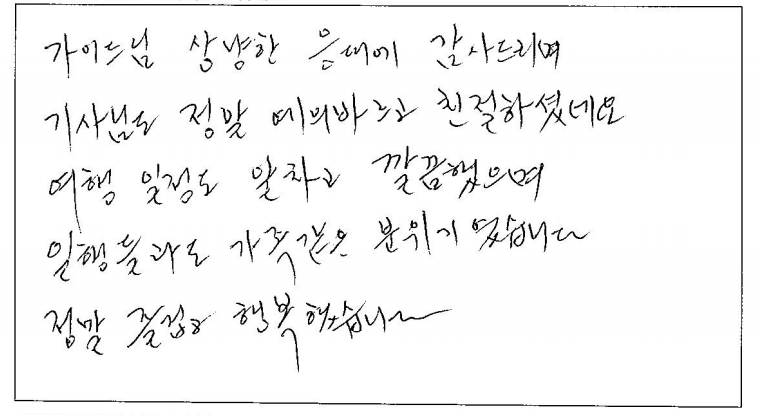 가이드님 상냥한 응대에 감사드리며
기사님도 정말 예의바르고 친절하셨네요
여행 일정도 알차고 깔끔했으며
일행들과도 가족같은 분위기였습니다
정말 즐겁고 행복했습니다